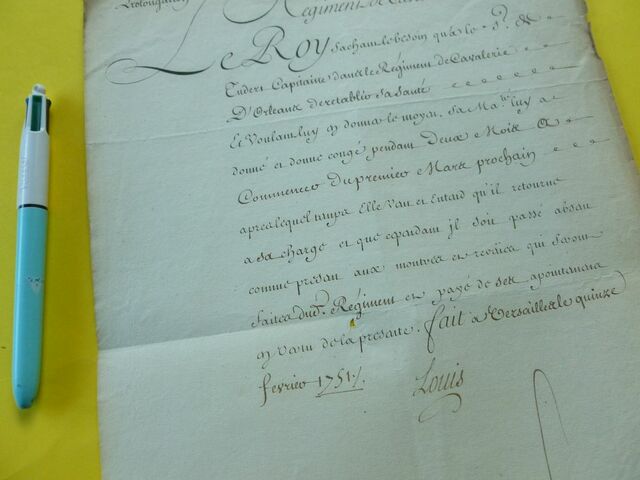 Prolongation
Regiment de
Le Roy sachant le besoin qu'a le S.r de
Capitaine dans le Regiment de Cavalerie
D'Orleans de retablir sa santé
Et Voulant luy en donner le moyen. Sa Ma.té luy a
donné et donne congé pendant Deux Mois A
Commencer du premier Mars prochain
apres lequel temps Elle veut et Entend qu'il retourne
a sa charge et que cependant il soit passé absent
comme present aux montres et reveües qui seront
faites dud. Regiment et payé de ses apointemens
en vertu de la presente. fait a Versailles le quinze
fevrier 1751./.
Louis